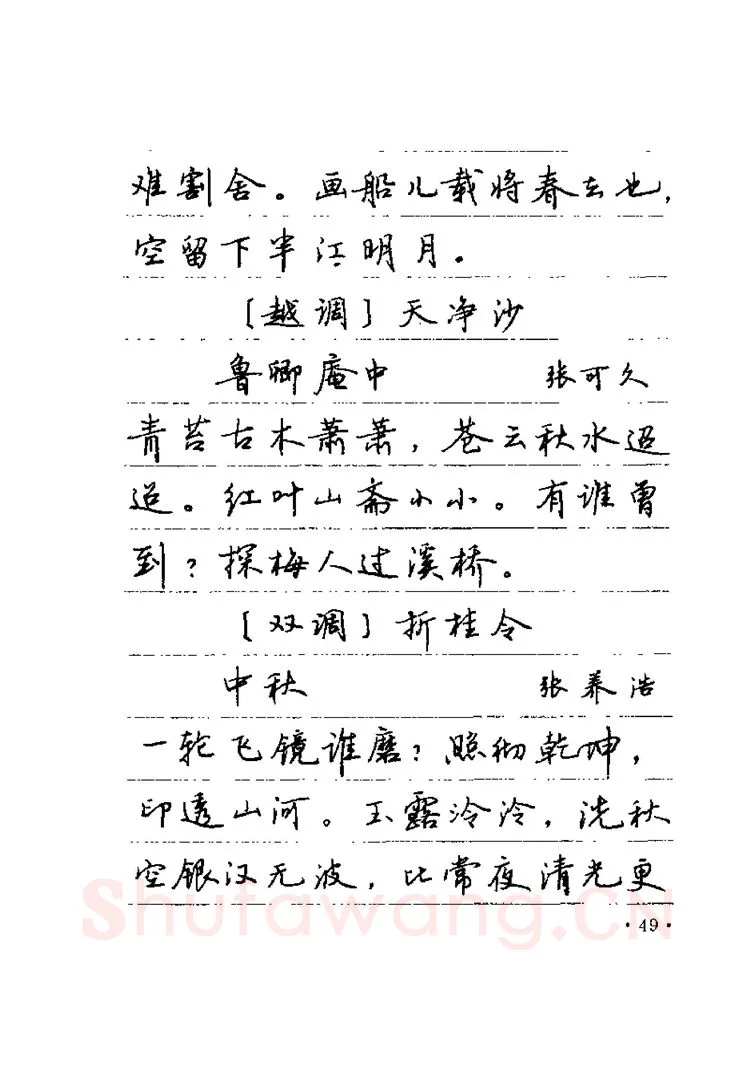 难割舍。画船儿载将春去也，
空留下半江明月。
［越调］天净沙
鲁卿庵中 张可久
青苔古木萧萧，苍云秋水迢
迢。红叶山斋小小。有谁曾
到？探梅人过溪桥。
［双调］折桂令
中秋 张养浩
一轮飞镜谁磨？照彻乾坤，
印透山河。玉露泠泠，洗秋
空银汉无波，比常夜清光更
Shufawang.CN
·49·